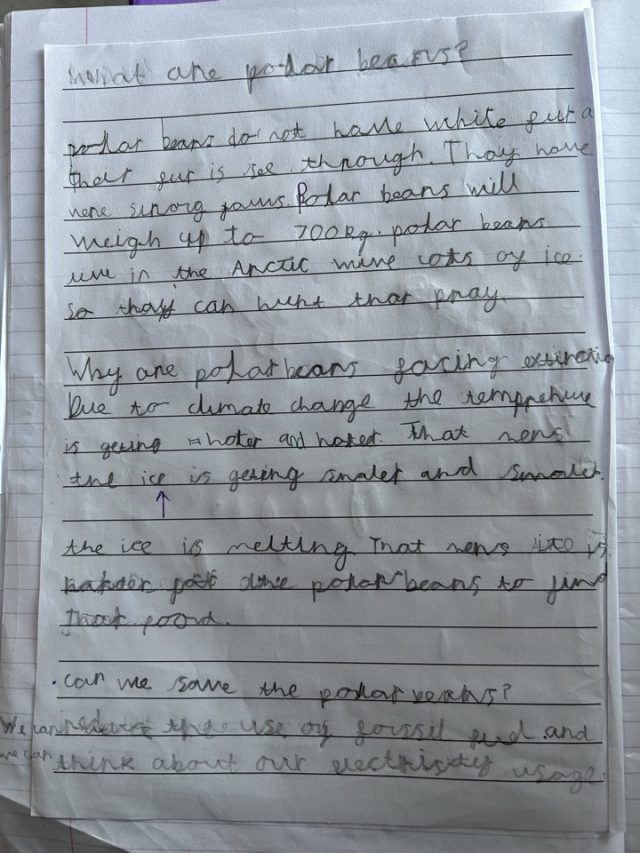 what are polar bears?
polar bears do not have white fur a
their fur is see through. Thay have
very strong jaws. Polar bears will
weigh up to 700kg. polar bears
live in the Arctic wive lots of ice.
so thay can hunt thar pray.
Why are polar bears facing extinctio
Due to climate change the
is geting hoter and hoter. That mens
the ice is geting smaler and smaler.
the ice is melting That mens it is
harder for the polar bears to find
thar food.
. can we save the polar bears?
We can reduce the use of fossil fuel and
we can think about our electristy usage.